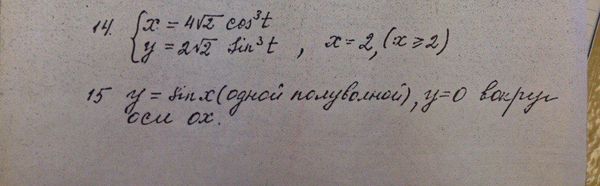 14. { x = 4√2 cos³t
y = 2√2 sin³t , x = 2, (x ≥ 2)
15 y = sin x (одной полуволной), y=0 вокруг
оси ох.